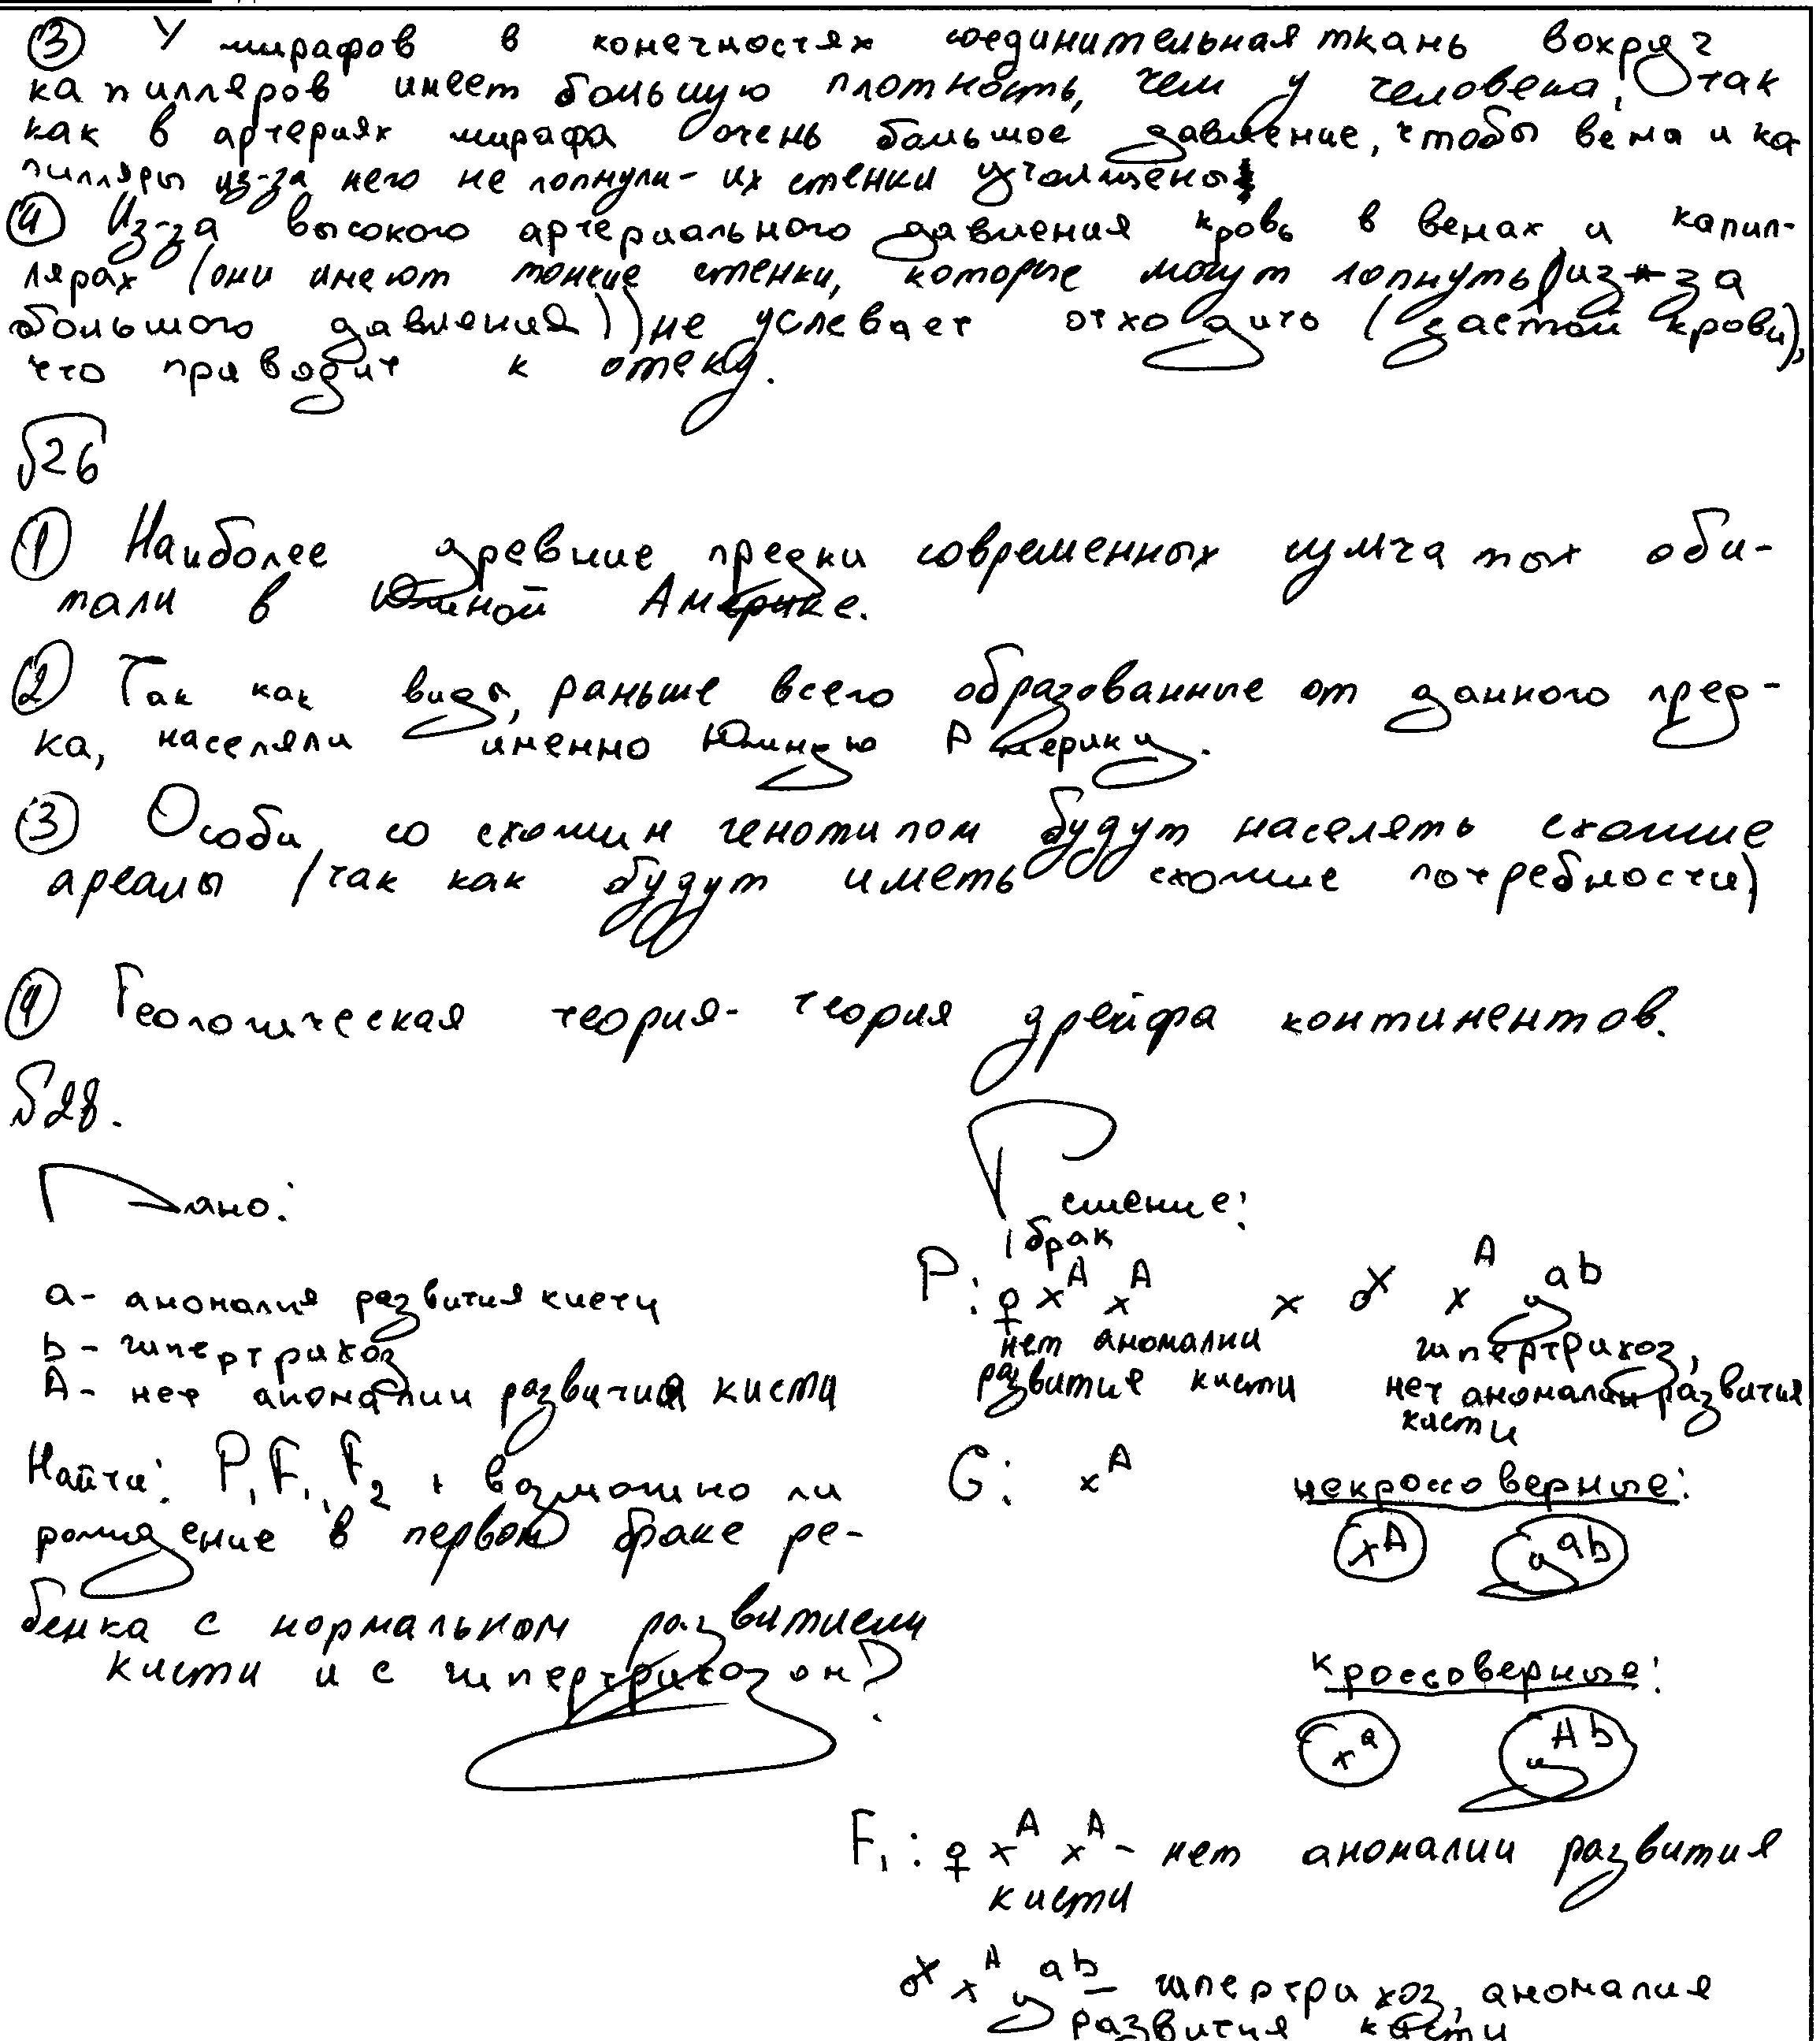 ③ У жирафов в конечностях соединительная ткань вокруг
капилляров имеет большую плотность, чем у человека, так
как в артериях жирафа очень большое давление, чтобы вена и ка
пилляры из-за него не лопнули- их стенки утолщены
④ Из-за высокого артериального давления кровь в венах и капил-
лярах (они имеют тонкие стенки, которые могут лопнуть (из-за
большого давления)) не успевает отходить (застой крови),
что приводит к отеку.
№26
① Наиболее древние предки современных сумчатых оби-
тали в Южной Америке.
② Так как виды, раньше всего образованные от данного пред-
ка, населяли именно Южную Америку.
③ Особи со схожим генотипом будут населять схожие
ареалы (так как будут иметь схожие потребности)
④ Геологическая теория- теория дрейфа континентов.
№28.
Дано: Решение:
1 брак
a- аномалия развития кисти P: ♀ x^A x^A x ♂ x^A y^ab
b- гипертрихоз нет аномалии гипертрихоз,
A- нет аномалии развития кисти развития кисти нет аномалии развития
кисти
Найти: P, F₁, F₂, возможно ли G: x^A некроссоверные:
рождение в первом браке ре- x^A y^ab
бенка с нормальном развитием
кисти и с гипертрихозом? кроссоверные:
x^a y^Ab
F₁: ♀ x^A x^A - нет аномалии развития
кисти
♂ x^A y^ab - гипертрихоз, аномалия
развития кисти